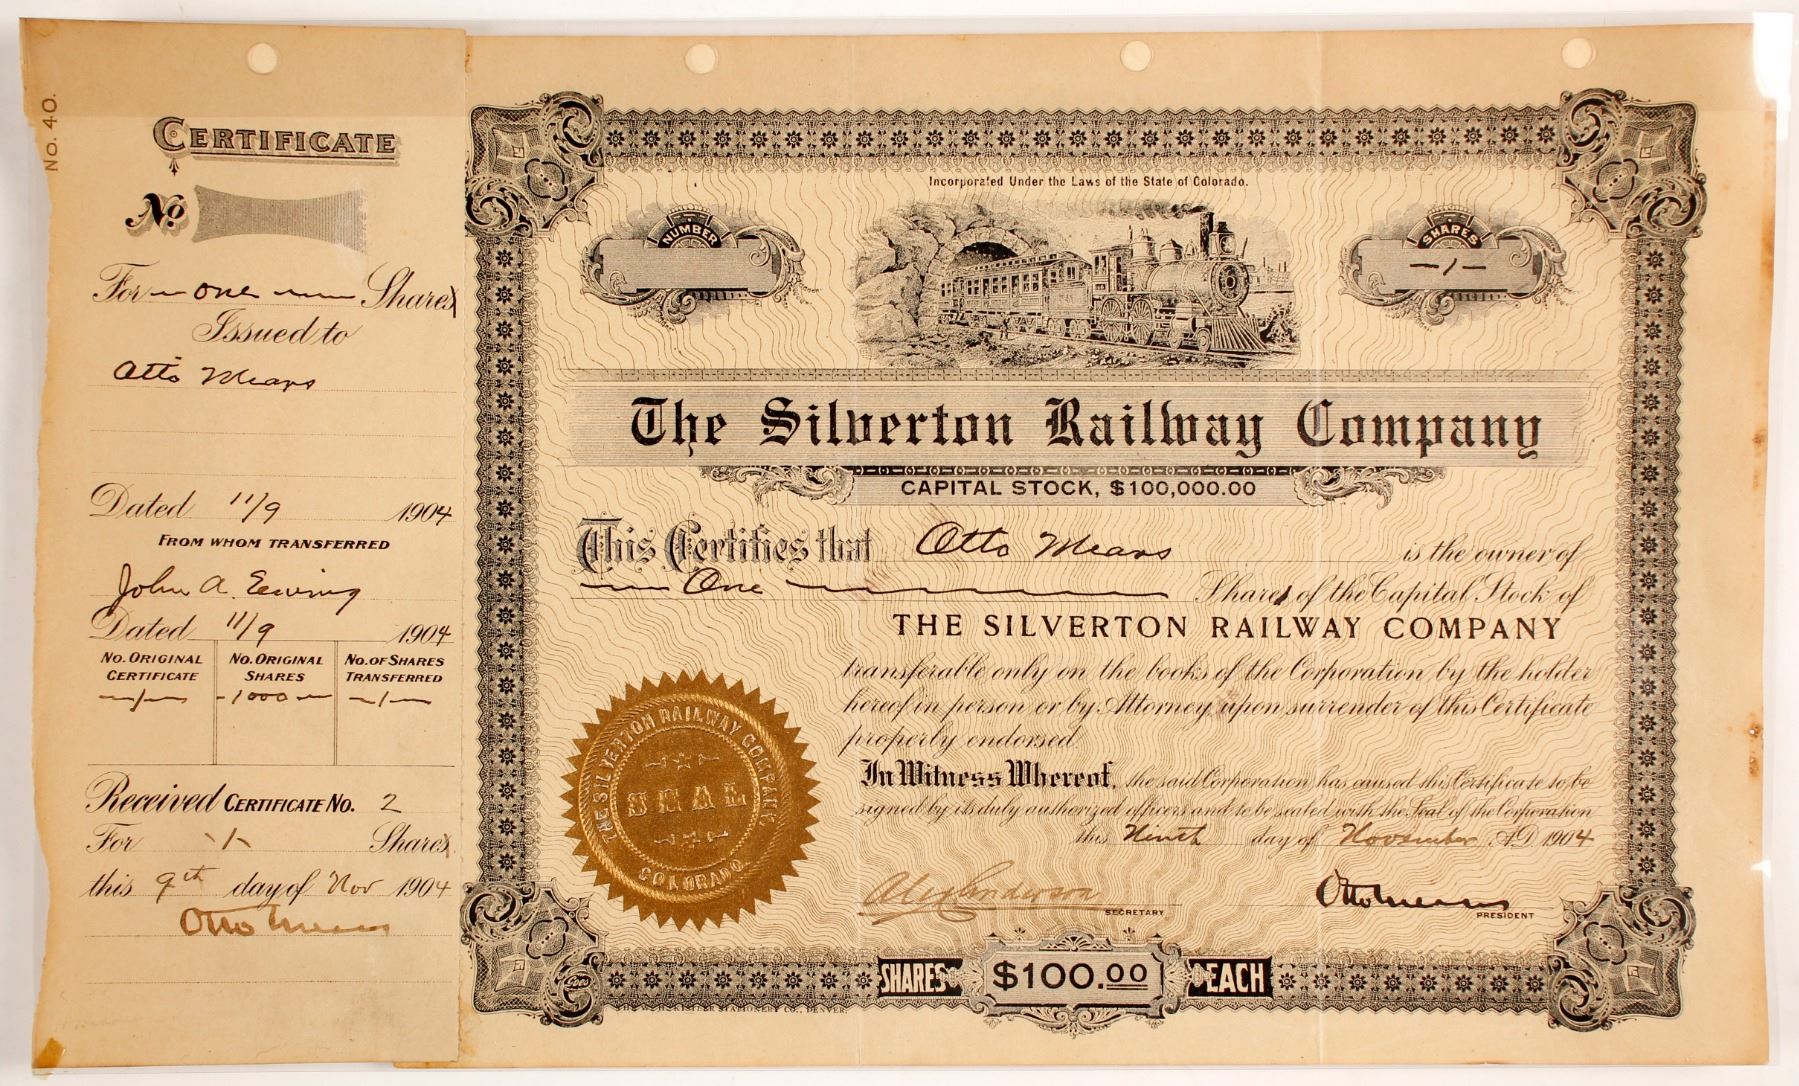 No. 40.
CERTIFICATE
No
For one Shares
Issued to
Otto Mears
Dated 11/9 1904
FROM WHOM TRANSFERRED
John A. Ewing
Dated 11/9 1904
NO. ORIGINAL CERTIFICATE NO. ORIGINAL SHARES NO. OF SHARES TRANSFERRED
-1- -1000- -1-
Received CERTIFICATE NO. 2
For -1- Shares
this 9th day of Nov 1904
Otto Mears
Incorporated Under the Laws of the State of Colorado.
NUMBER
SHARES
-1-
The Silverton Railway Company
CAPITAL STOCK, $100,000.00
This Certifies that Otto Mears is the owner of
One Shares of the Capital Stock of
THE SILVERTON RAILWAY COMPANY
transferable only on the books of the Corporation by the holder
hereof in person or by Attorney, upon surrender of this Certificate
properly endorsed.
In Witness Whereof, the said Corporation has caused this Certificate to be
signed by its duly authorized officers and to be sealed with the Seal of the Corporation
this Ninth day of November A.D. 1904
THE SILVERTON RAILWAY COMPANY
SEAL
COLORADO.
Alex Anderson
SECRETARY
Otto Mears
PRESIDENT
SHARES $100.00 EACH
STATIONERY CO., DENVER